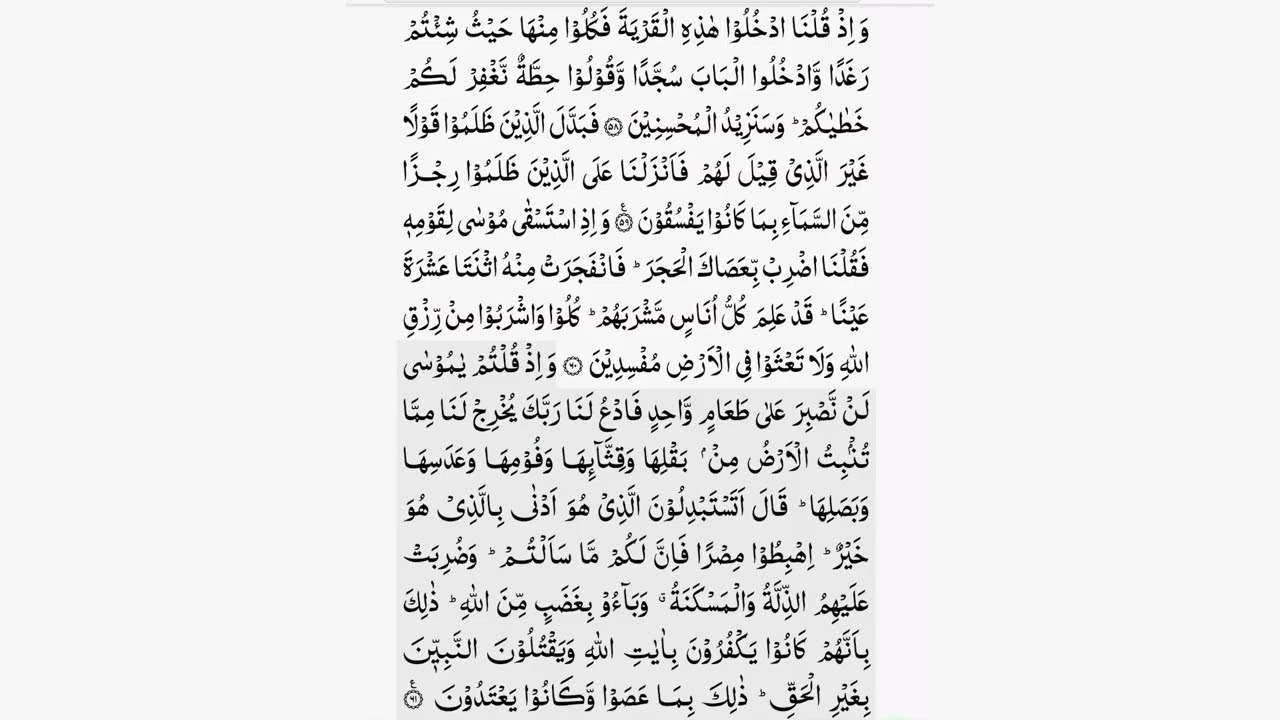 وَاِذۡ قُلۡنَا ادۡخُلُوۡا هٰذِهِ الۡقَرۡيَةَ فَکُلُوۡا مِنۡهَا حَيۡثُ شِئۡتُمۡ
رَغَدًا وَّادۡخُلُوا الۡبَابَ سُجَّدًا وَّقُوۡلُوۡا حِطَّةٌ نَّغۡفِرۡ لَـكُمۡ
خَطٰيٰكُمۡ‌ؕ وَسَنَزِيۡدُ الۡمُحۡسِنِيۡنَ ۝۵۸ فَبَدَّلَ الَّذِيۡنَ ظَلَمُوۡا قَوۡلًا
غَيۡرَ الَّذِىۡ قِيۡلَ لَهُمۡ فَاَنۡزَلۡنَا عَلَى الَّذِيۡنَ ظَلَمُوۡا رِجۡزًا
مِّنَ السَّمَآءِ بِمَا كَانُوۡا يَفۡسُقُوۡنَ ۝۵۹ؑ وَاِذِ اسۡتَسۡقٰى مُوۡسٰى لِقَوۡمِهٖ
فَقُلۡنَا اضۡرِبۡ بِّعَصَاكَ الۡحَجَرَ‌ؕ فَانۡفَجَرَتۡ مِنۡهُ اثۡنَتَا عَشۡرَةَ
عَيۡنًا‌ؕ قَدۡ عَلِمَ کُلُّ اُنَاسٍ مَّشۡرَبَهُمۡ‌ؕ کُلُوۡا وَاشۡرَبُوۡا مِنۡ رِّزۡقِ
اللّٰهِ وَلَا تَعۡثَوۡا فِى الۡاَرۡضِ مُفۡسِدِيۡنَ ۝۶۰ وَاِذۡ قُلۡتُمۡ يٰمُوۡسٰى
لَنۡ نَّصۡبِرَ عَلٰى طَعَامٍ وَّاحِدٍ فَادۡعُ لَنَا رَبَّكَ يُخۡرِجۡ لَنَا مِمَّا
تُنۡۢبِتُ الۡاَرۡضُ مِنۡۢ بَقۡلِهَا وَقِثَّآئِهَا وَفُوۡمِهَا وَعَدَسِهَا
وَبَصَلِهَا‌ؕ قَالَ اَتَسۡتَبۡدِلُوۡنَ الَّذِىۡ هُوَ اَدۡنٰى بِالَّذِىۡ هُوَ
خَيۡرٌ‌ؕ اِهۡبِطُوۡا مِصۡرًا فَاِنَّ لَـکُمۡ مَّا سَاَلۡتُمۡ‌ؕ وَضُرِبَتۡ
عَلَيۡهِمُ الذِّلَّةُ وَالۡمَسۡکَنَةُ وَبَآءُوۡ بِغَضَبٍ مِّنَ اللّٰهِ‌ؕ ذٰلِكَ
بِاَنَّهُمۡ كَانُوۡا يَكۡفُرُوۡنَ بِاٰيٰتِ اللّٰهِ وَيَقۡتُلُوۡنَ النَّبِيّٖنَ
بِغَيۡرِ الۡحَقِّ‌ؕ ذٰلِكَ بِمَا عَصَوۡا وَّڪَانُوۡا يَعۡتَدُوۡنَ ۝۶۱ؑ